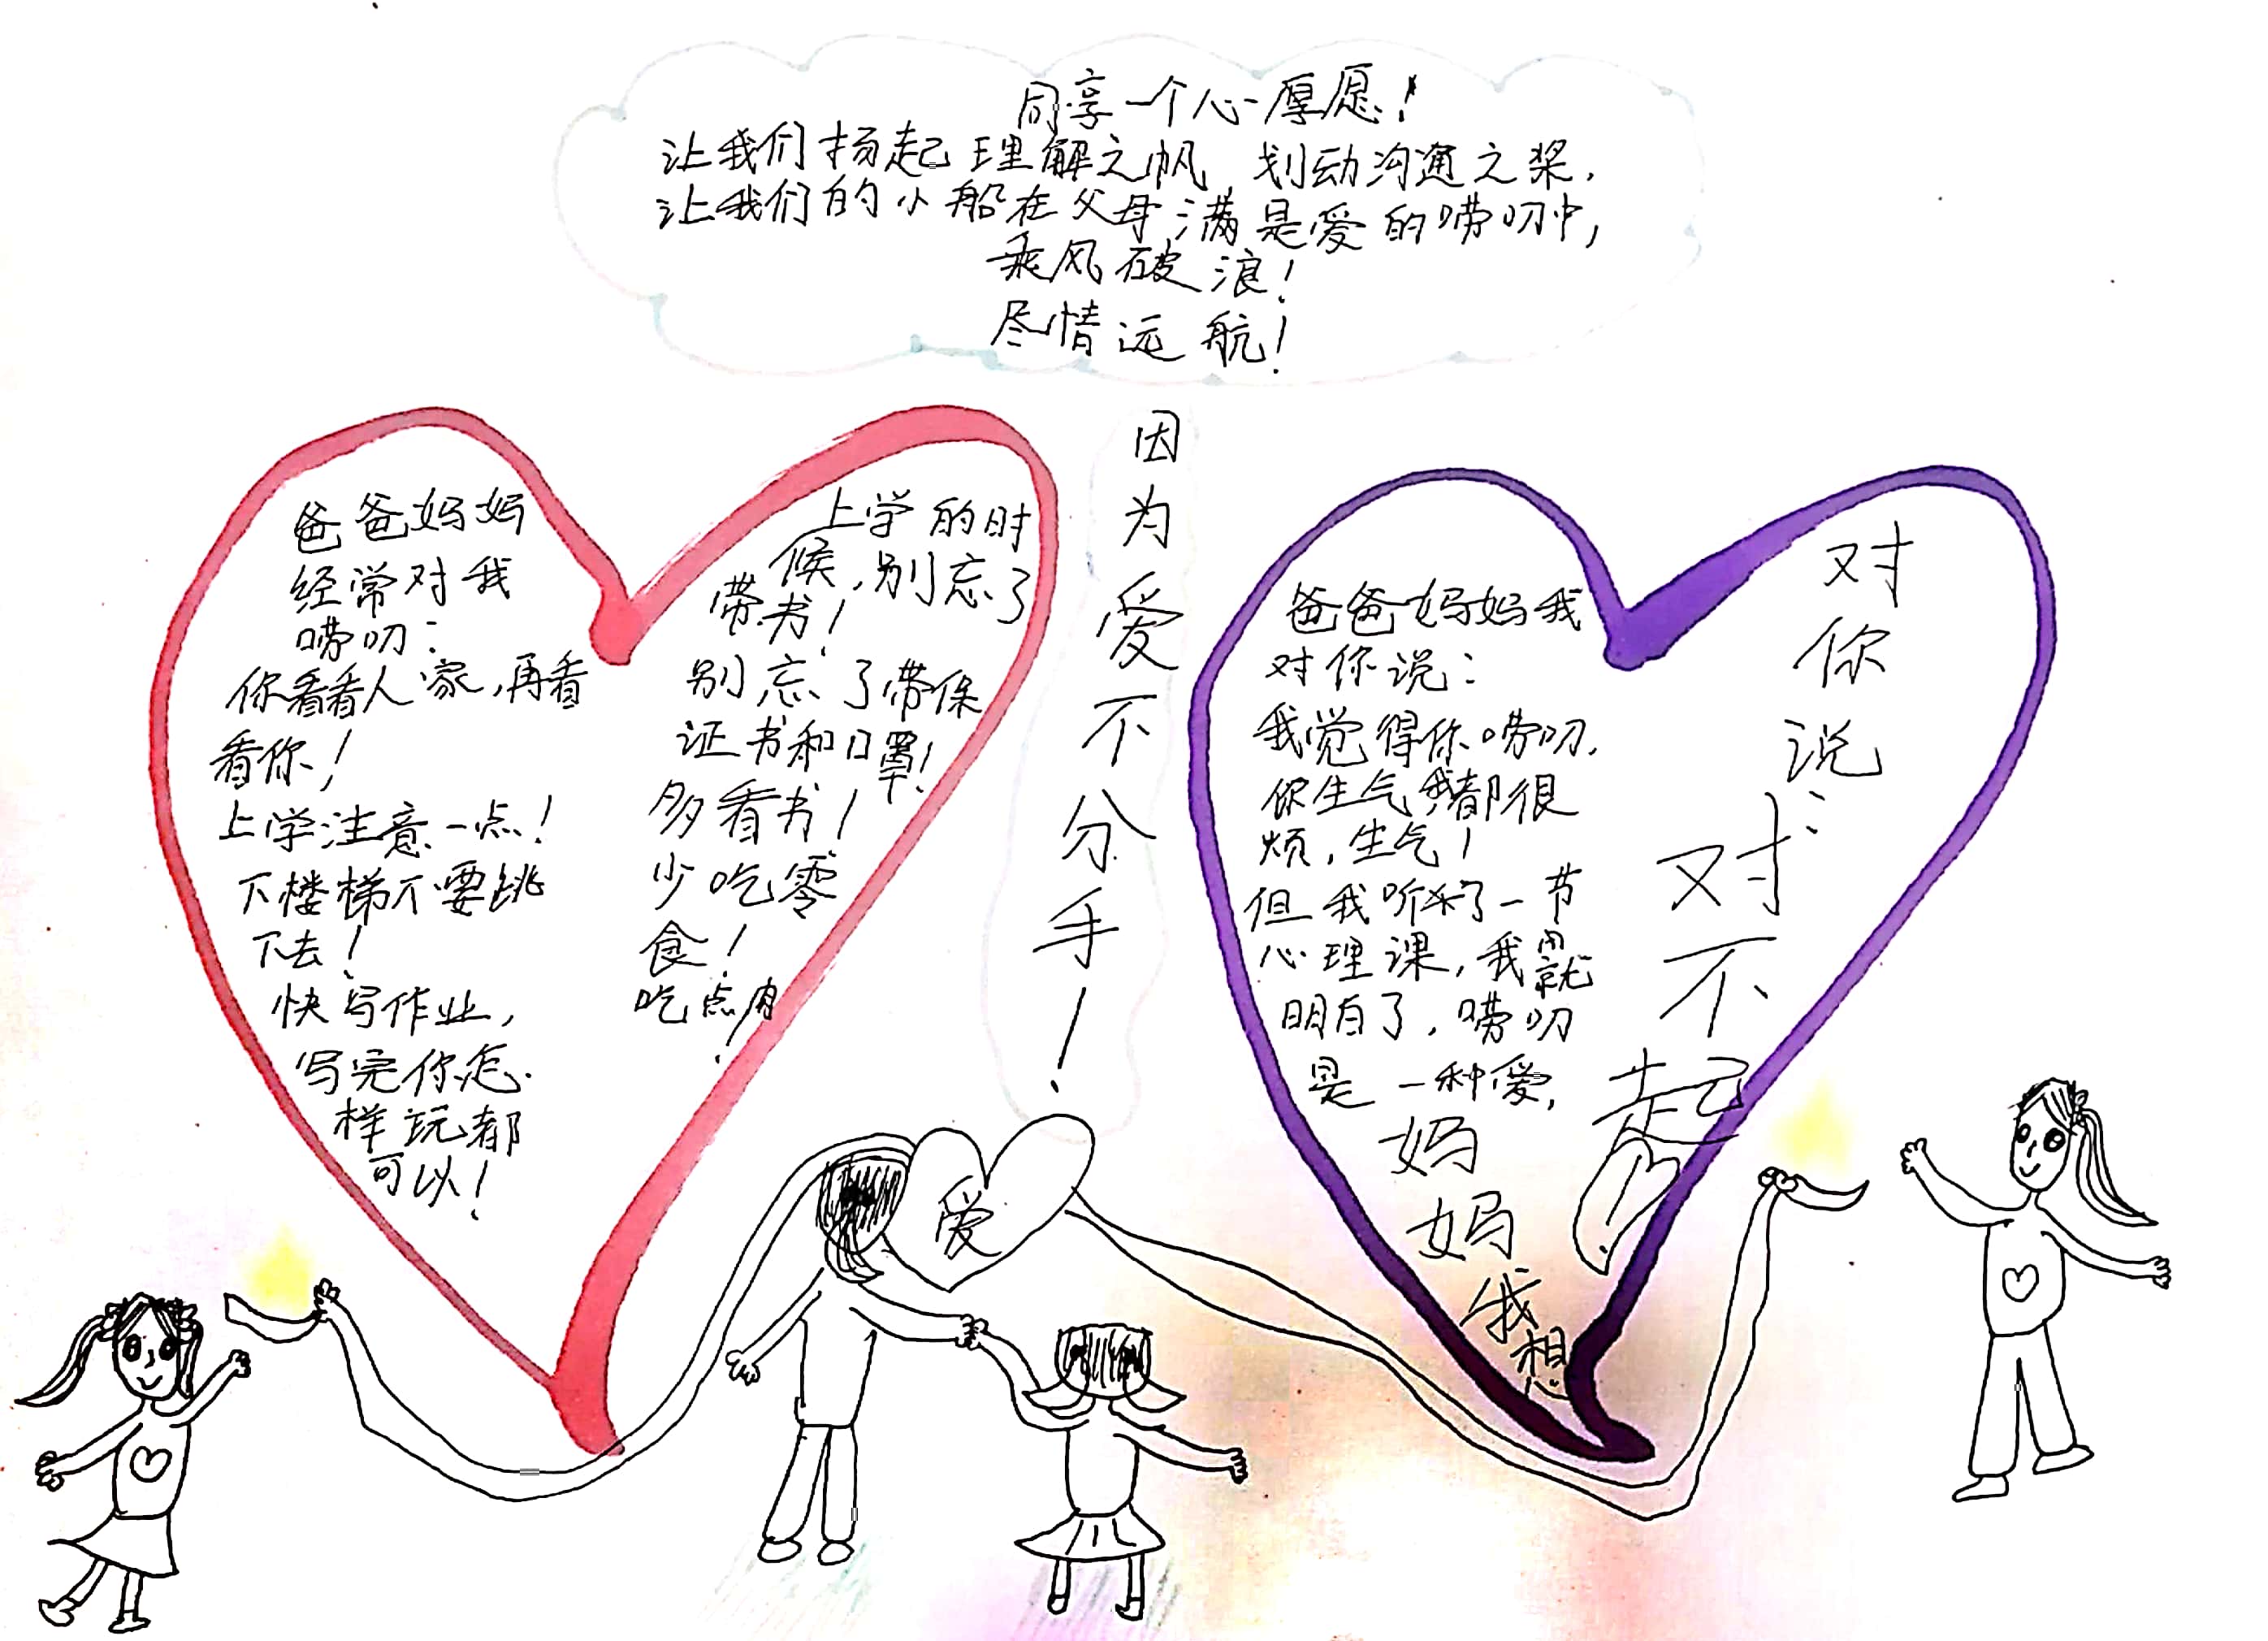 同享一个心愿！
让我们扬起理解之帆，划动沟通之桨，
让我们的小船在父母满是爱的唠叨中，
乘风破浪！
尽情远航！
爸爸妈妈
经常对我
唠叨：
你看看人家，再看
看你！
上学注意一点！
下楼梯不要跳
下去！
快写作业，
写完你怎
样玩都
可以！
上学的时
候，别忘了
带书！
别忘了带保
证书和口罩！
多看书！
少吃零
食！
吃点肉！
因为爱不分手！
爸爸妈妈我
对你说：
我觉得你唠叨，
你生气我都很
烦，生气！
但我听了一节
心理课，我就
明白了，唠叨
是一种爱，
妈
妈
我
想
对
你
说：
对
不
起！
爱